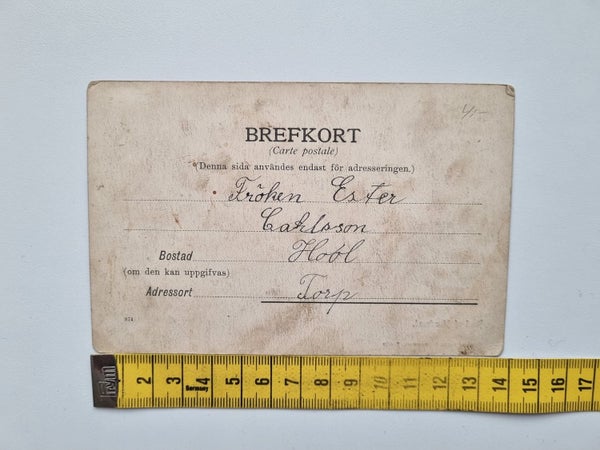 4/-
BREFKORT
(Carte postale)
(Denna sida användes endast för adresseringen.)
Fröken Ester
Carlsson
Bostad Hobl
(om den kan uppgifvas)
Adressort Torp
974
2 3 4 5 6 7 8 9 10 11 12 13 14 15 16 17
Germany